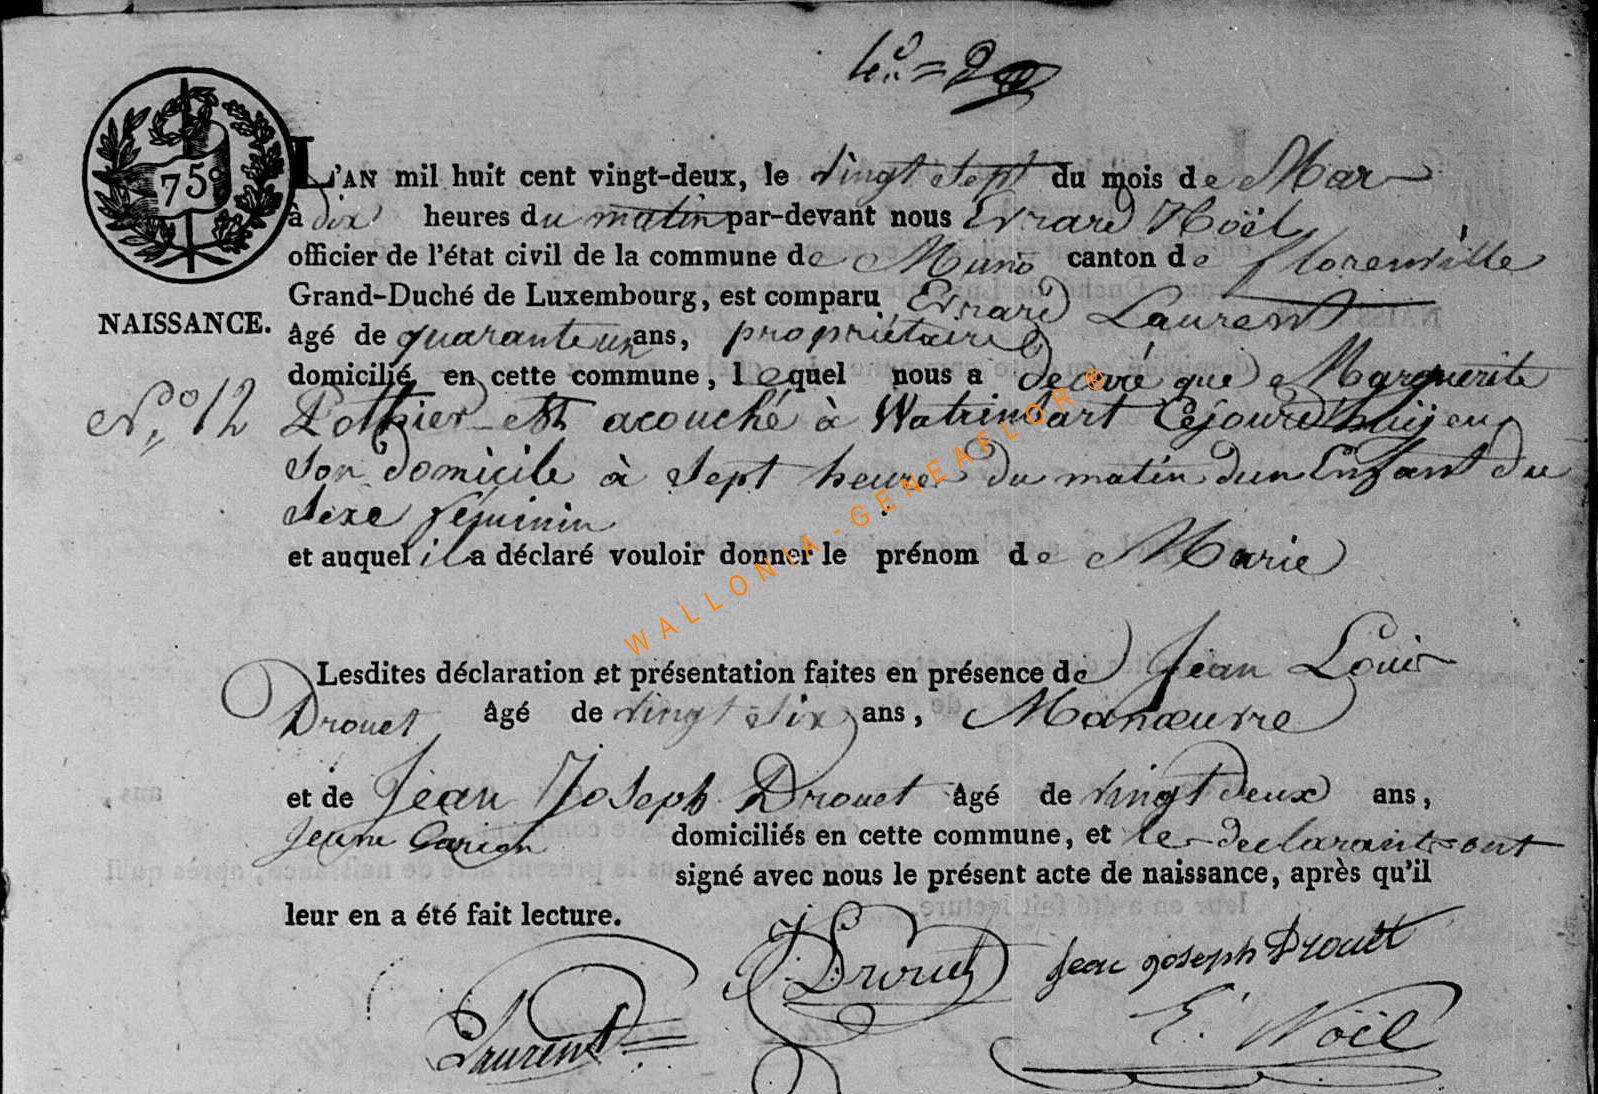 75c
L'AN mil huit cent vingt-deux, le vingt sept du mois de Mar
à dix heures du matin par-devant nous Evrard Noël
officier de l'état civil de la commune de Muno canton de florenville
Grand-Duché de Luxembourg, est comparu Evrard Laurent
NAISSANCE.
âgé de quarante un ans, propriétaire
domicilié en cette commune, lequel nous a declaré que Marguerite
N.º 12
Pothier est acouché à Watrinsart Cejourd'huij en
son domicile à sept heure du matin dun Enfant du
sexe féminin
et auquel il a déclaré vouloir donner le prénom de Marie
WALLONIA-GENEAFLOR®
Lesdites déclaration et présentation faites en présence de Jean Louis
Drouet âgé de vingt six ans, Manœuvre
et de Jean Joseph Drouet âgé de vingt deux ans,
jeune Garson domiciliés en cette commune, et le declarant ont
signé avec nous le présent acte de naissance, après qu'il
leur en a été fait lecture.
Drouet Jean joseph Drouet
Laurent E. Noël